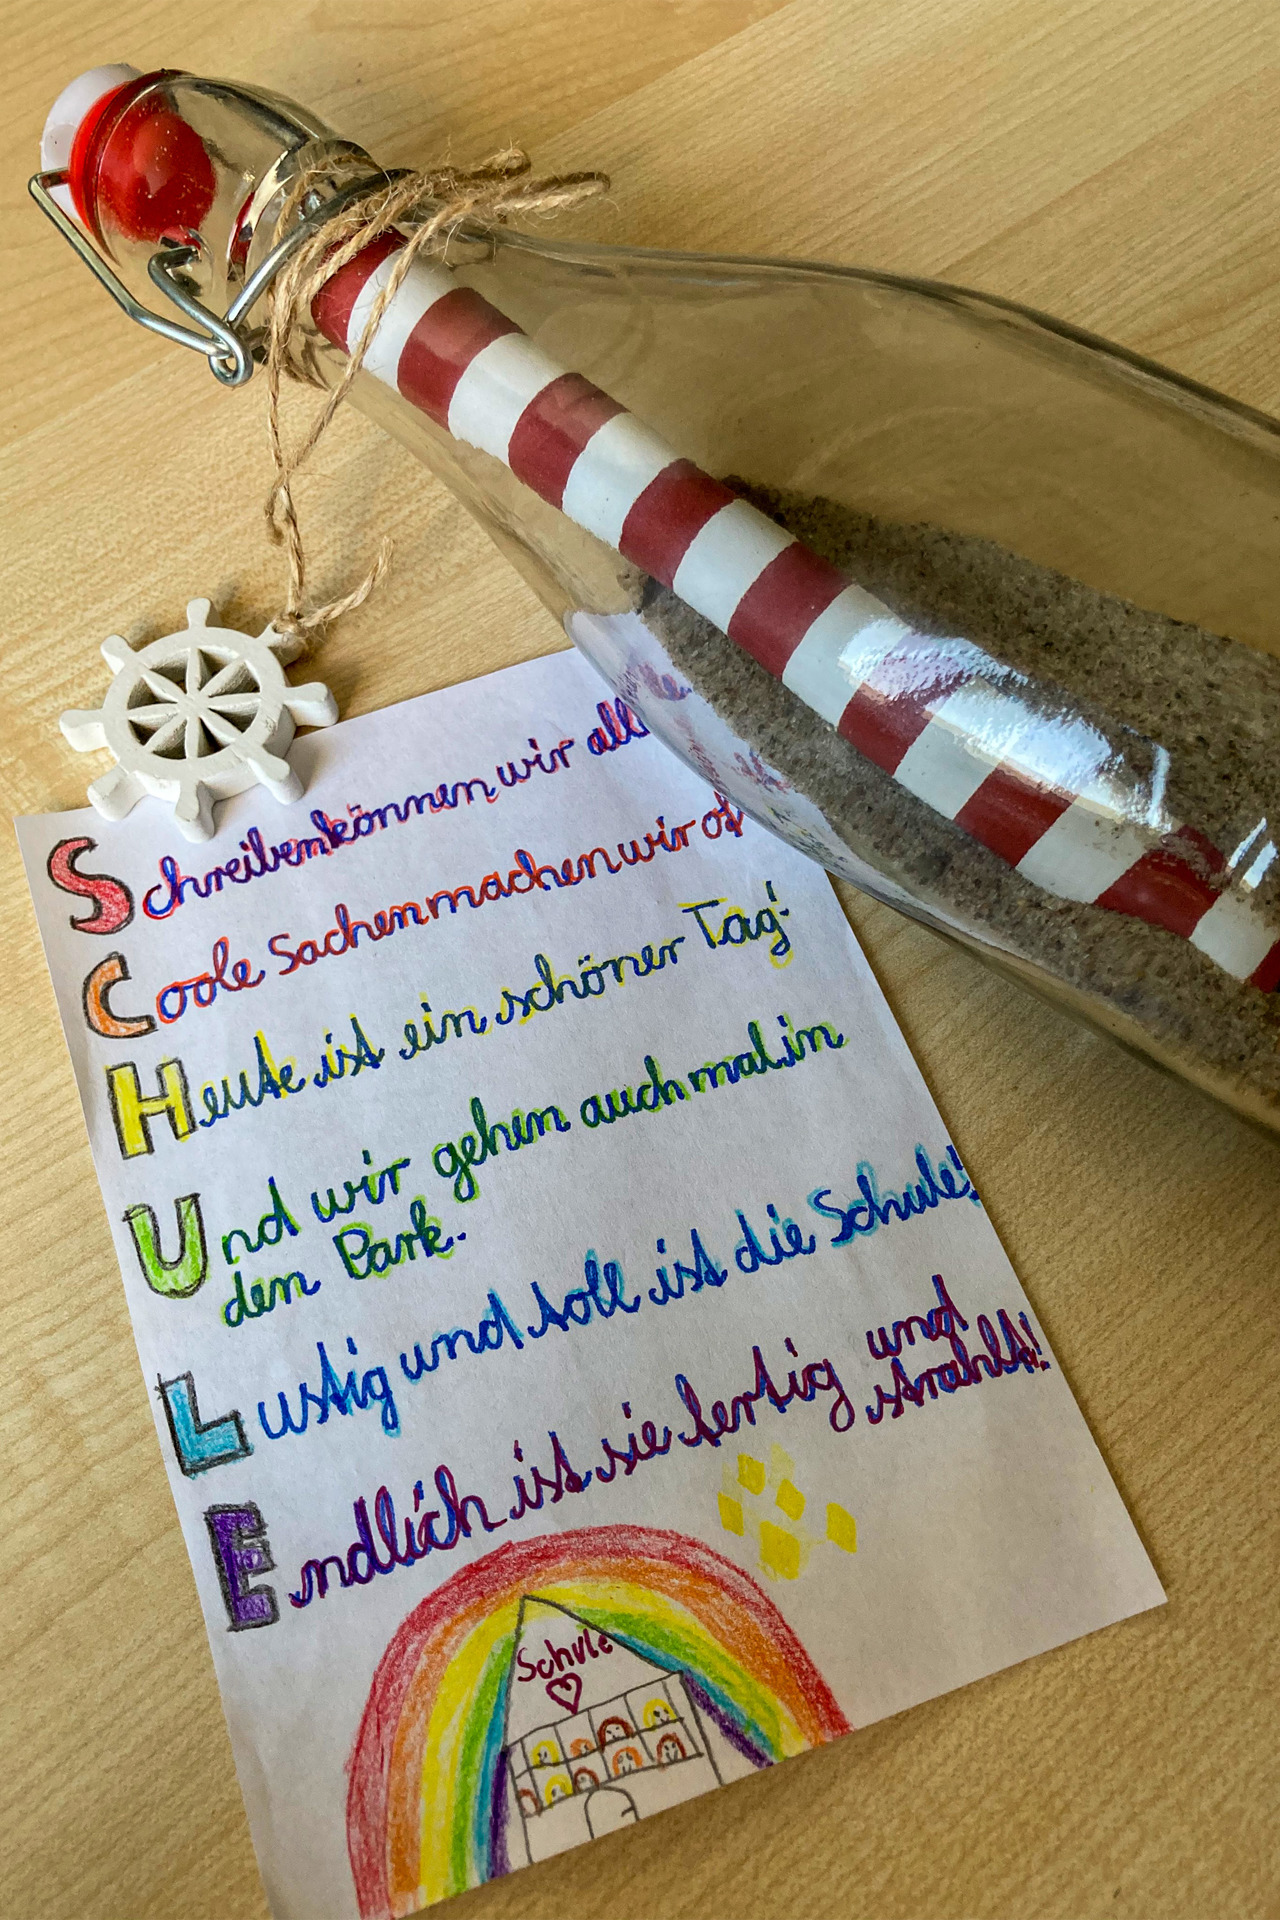 Schreiben können wir alle
Coole Sachen machen wir of
Heute ist ein schöner Tag!
Und wir gehen auch mal in
den Park.
Lustig und toll ist die Schule!
Endlich ist sie fertig und
strahlt!!
Schule